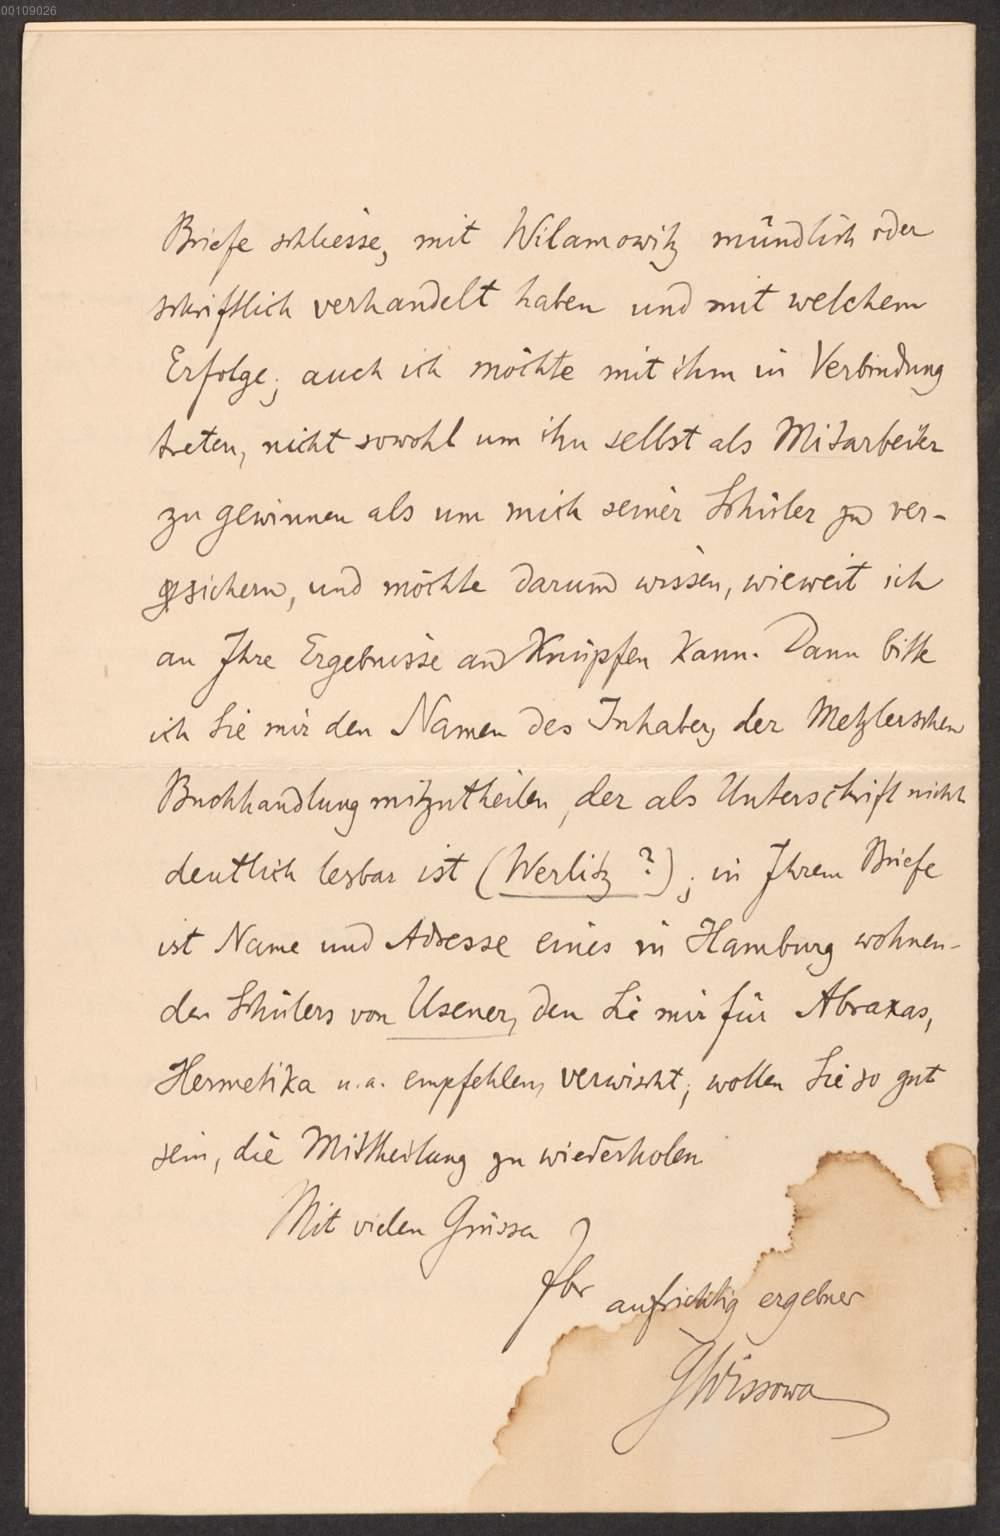 00109026
Briefe schliesse, mit Wilamowitz mündlich oder
schriftlich verhandelt haben und mit welchem
Erfolge; auch ich möchte mit ihm in Verbindung
treten, nicht sowohl um ihn selbst als Mitarbeiter
zu gewinnen als um mich seiner Schüler zu ver-
sichern, und möchte darum wissen, wieweit ich
an Ihre Ergebnisse anknüpfen kann. Dann bitte
ich Sie mir den Namen des Inhabers der Metzlerschen
Buchhandlung mitzutheilen, der als Unterschrift nicht
deutlich lesbar ist (Werlitz ?); in Ihrem Briefe
ist Name und Adresse eines in Hamburg wohnen-
den Schülers von Usener, den Sie mir für Abraxas,
Hermetika u.a. empfehlen, verwischt; wollen Sie so gut
sein, die Mittheilung zu wiederholen.
Mit vielen Grüssen
Ihr aufrichtig ergebner
GWissowa